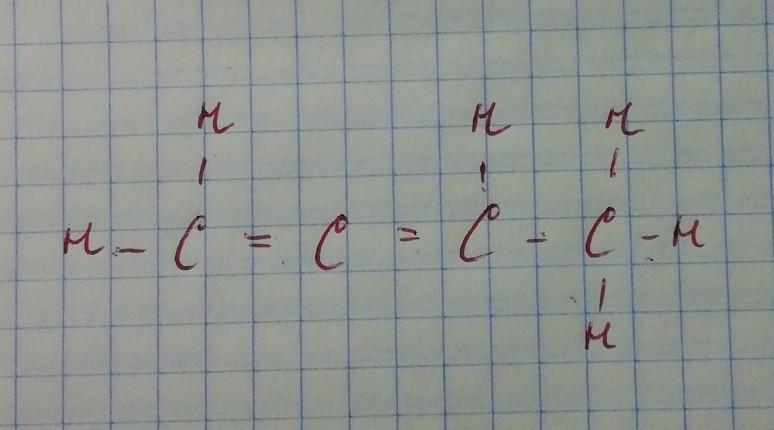 H H H
H - C = C = C - C - H
H